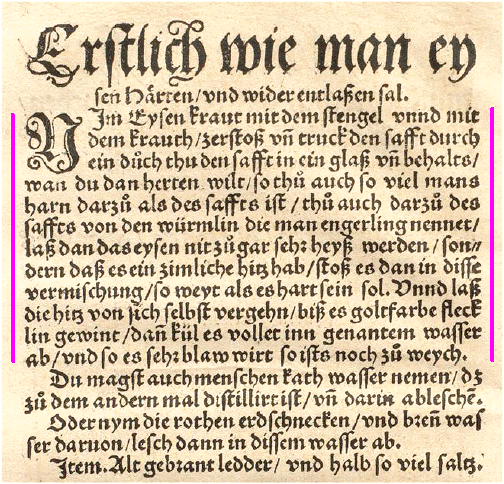 Erstlich wie man ey
sen Härten/vnd wider entlaßen sal.
NIm Eysen kraut mit dem stengel vnnd mit
dem krauth/zerstoß vñ truck den safft durch
ein düch thu den safft in ein glaß vñ behalts/
wan du dan herten wilt/so thů auch so viel mans
harn darzů als des saffts ist/thů auch darzů des
saffts von den würmlin die man engerling nennet/
laß dan das eysen nit zů gar sehr heyß werden/son⸗
dern daß es ein zimliche hitz hab/stoß es dan in disse
vermischung/so weyt als es hart sein sol. Vnnd laß
die hitz von sich selbst vergehn/biß es goltfarbe fleck
lin gewint/dañ kül es vollet inn genantem wasser
ab/vnd so es sehr blaw wirt so ists noch zů weych.
Du magst auch menschen kath wasser nemen/dz
zů dem andern mal distillirt ist/vñ darin ableschē.
Oder nym die rothen erdschnecken/vnd breñ was
ser daruon/lesch dann in dissem wasser ab.
Item. Alt gebrant ledder/vnd halb so viel saltz.